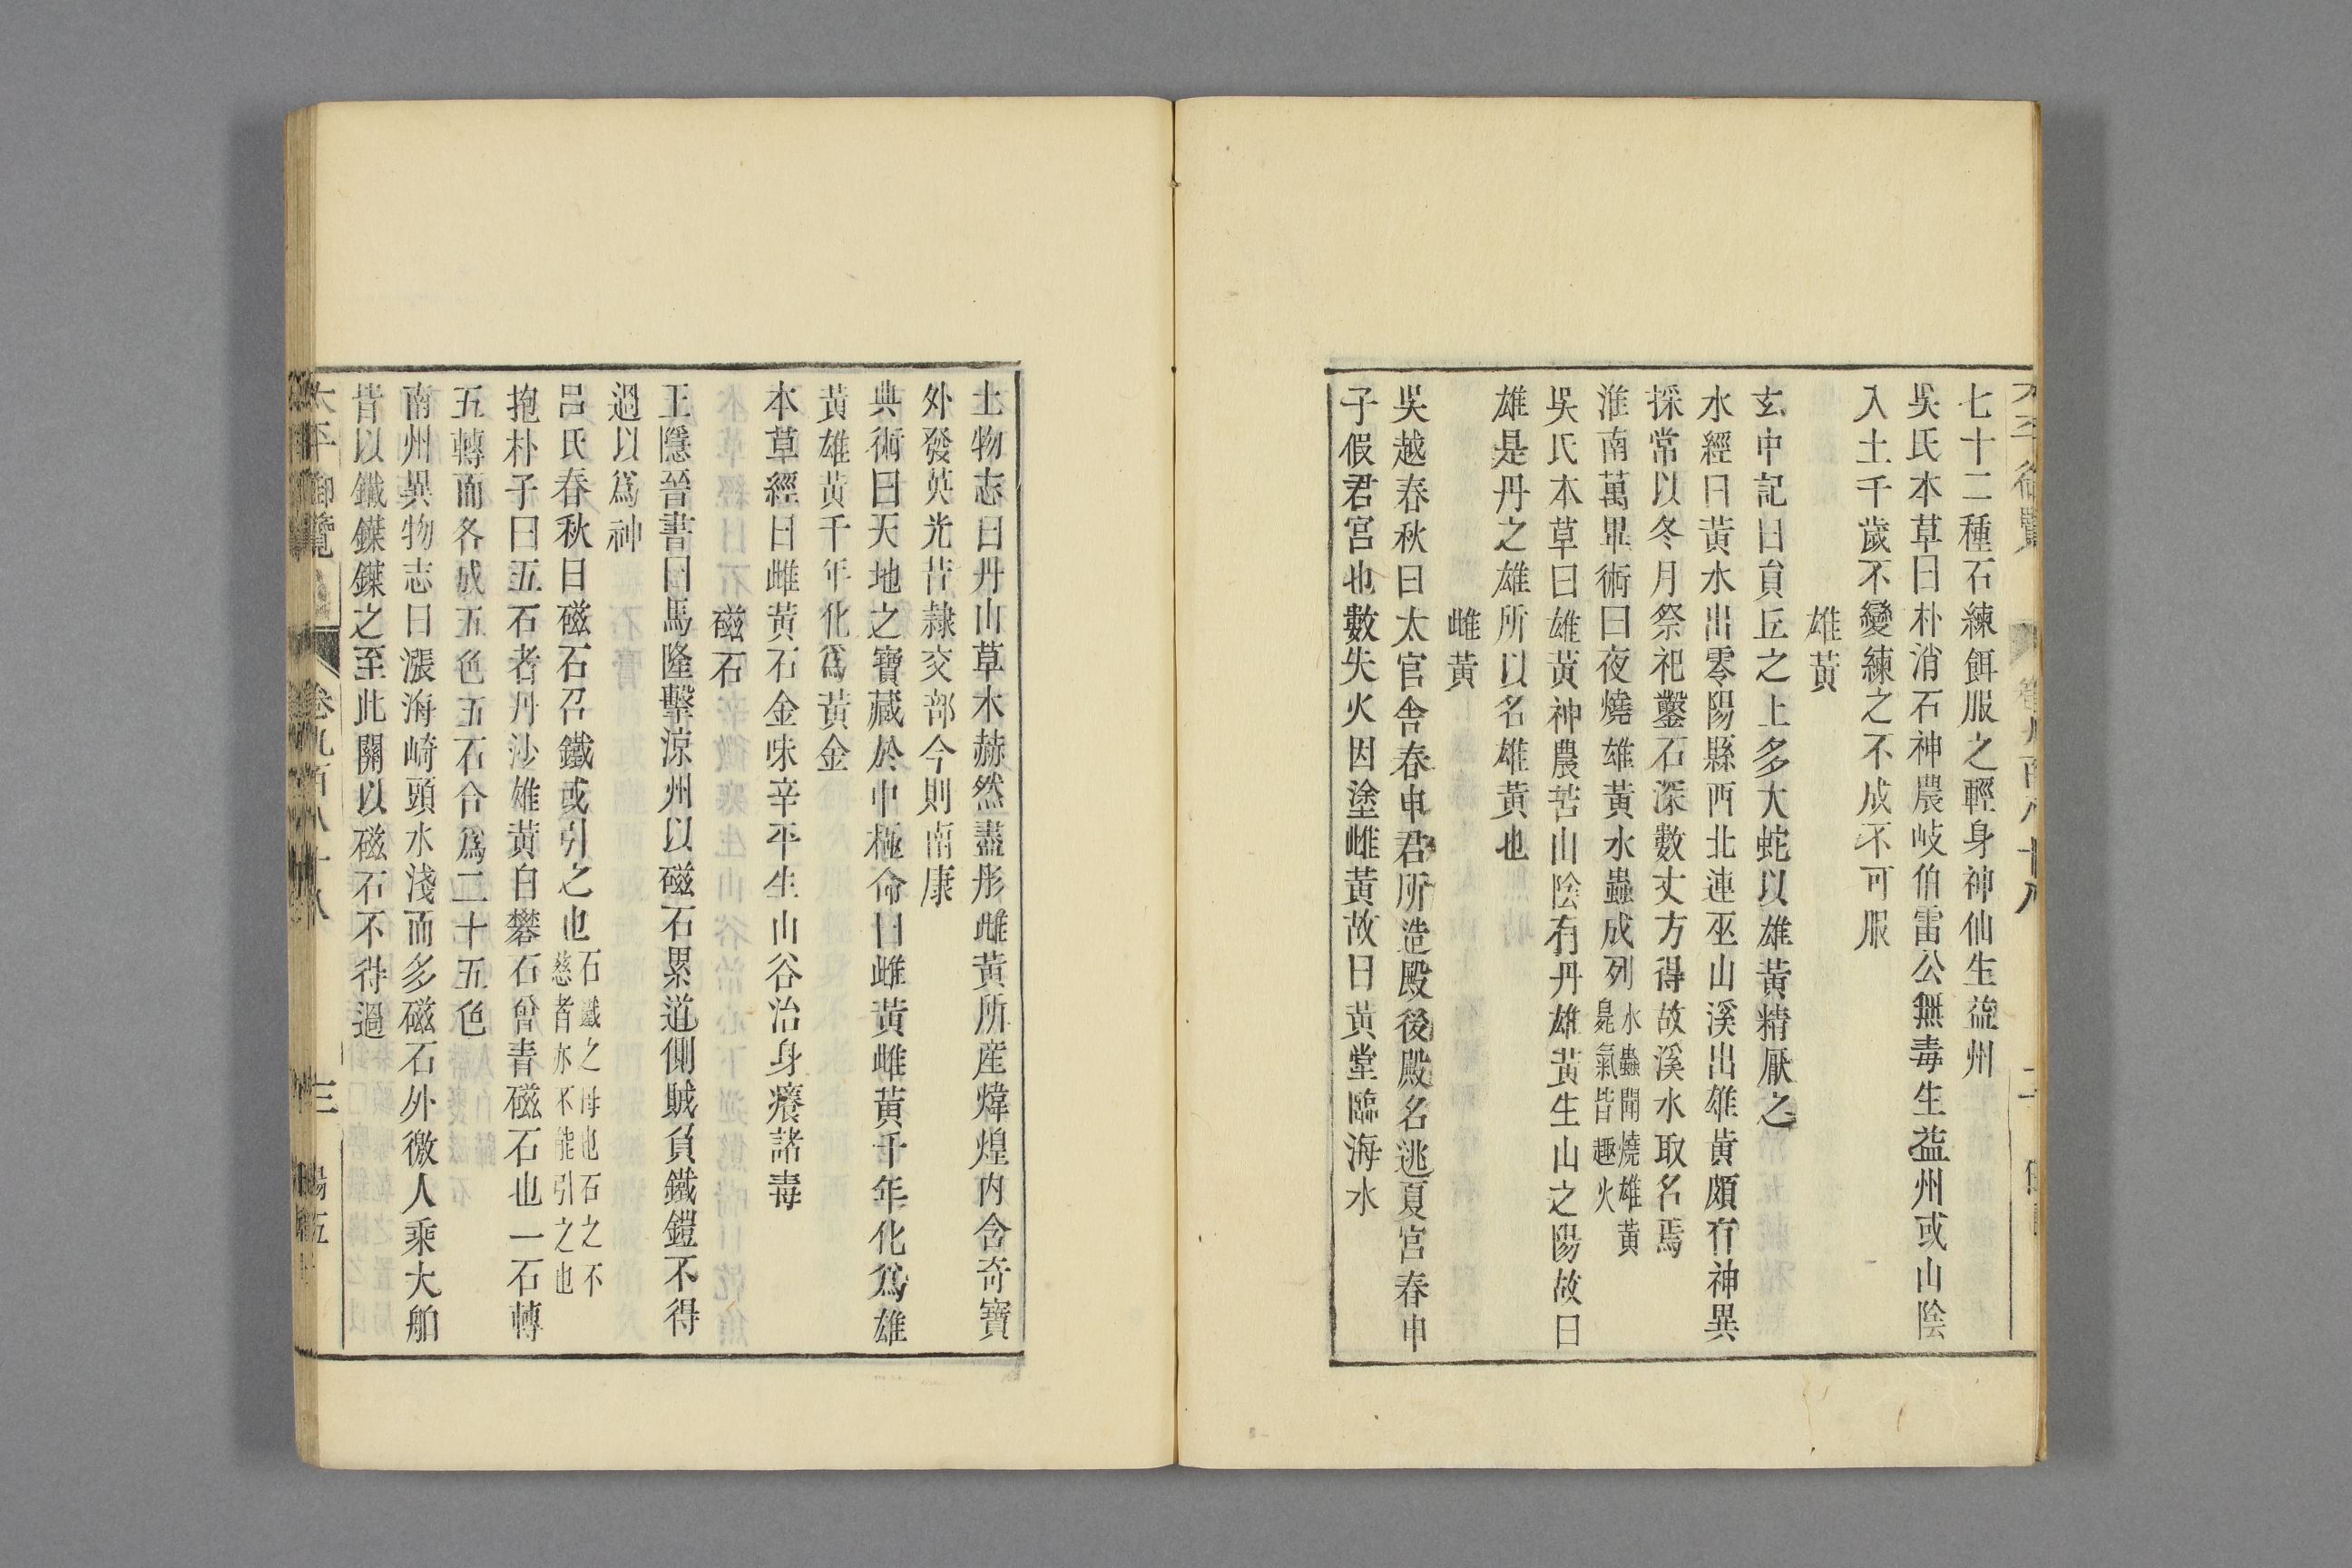 七十二種石練餌服之輕身神仙生益州
吳氏本草曰朴消石神農岐伯雷公無毒生益州或山陰
入土千歲不變練之不成不可服
雄黃
玄中記曰員丘之上多大蛇以雄黃精厭之
水經曰黃水出零陽縣西北連巫山溪出雄黃頗有神異
採常以冬月祭祀鑿石深數丈方得故溪水取名焉
淮南萬畢術曰夜燒雄黃水蟲成列水蟲聞燒雄黃臭氣皆趣火
吳氏本草曰雄黃神農苦山陰有丹雄黃生山之陽故曰
雄是丹之雄所以名雄黃也
雌黃
吳越春秋曰太官舍春申君所造殿後殿名逃夏宮春申
子假君宮也數失火因塗雌黃故曰黃堂臨海水
土物志曰丹山草木赫然盡彤雌黃所産煒煌內含奇寶
外發英光昔隸交部今則南康
典術曰天地之寶藏於中極命曰雌黃雌黃千年化爲雄
黃雄黃千年化爲黃金
本草經曰雌黃石金味辛平生山谷治身癢諸毒
磁石
王隱晉書曰馬隆擊涼州以磁石累道側賊負鐵鎧不得
過以爲神
呂氏春秋曰磁石召鐵或引之也石鐵之母也石之不慈者亦不能引之也
抱朴子曰五石者丹沙雄黃白礬石曾青磁石也一石轉
五轉而各成五色五石合爲二十五色
南州異物志曰漲海崎頭水淺而多磁石外徼人乘大舶
皆以鐵鍱鍱之至此關以磁石不得過
太平御覽
卷九百八十八
三
楊五